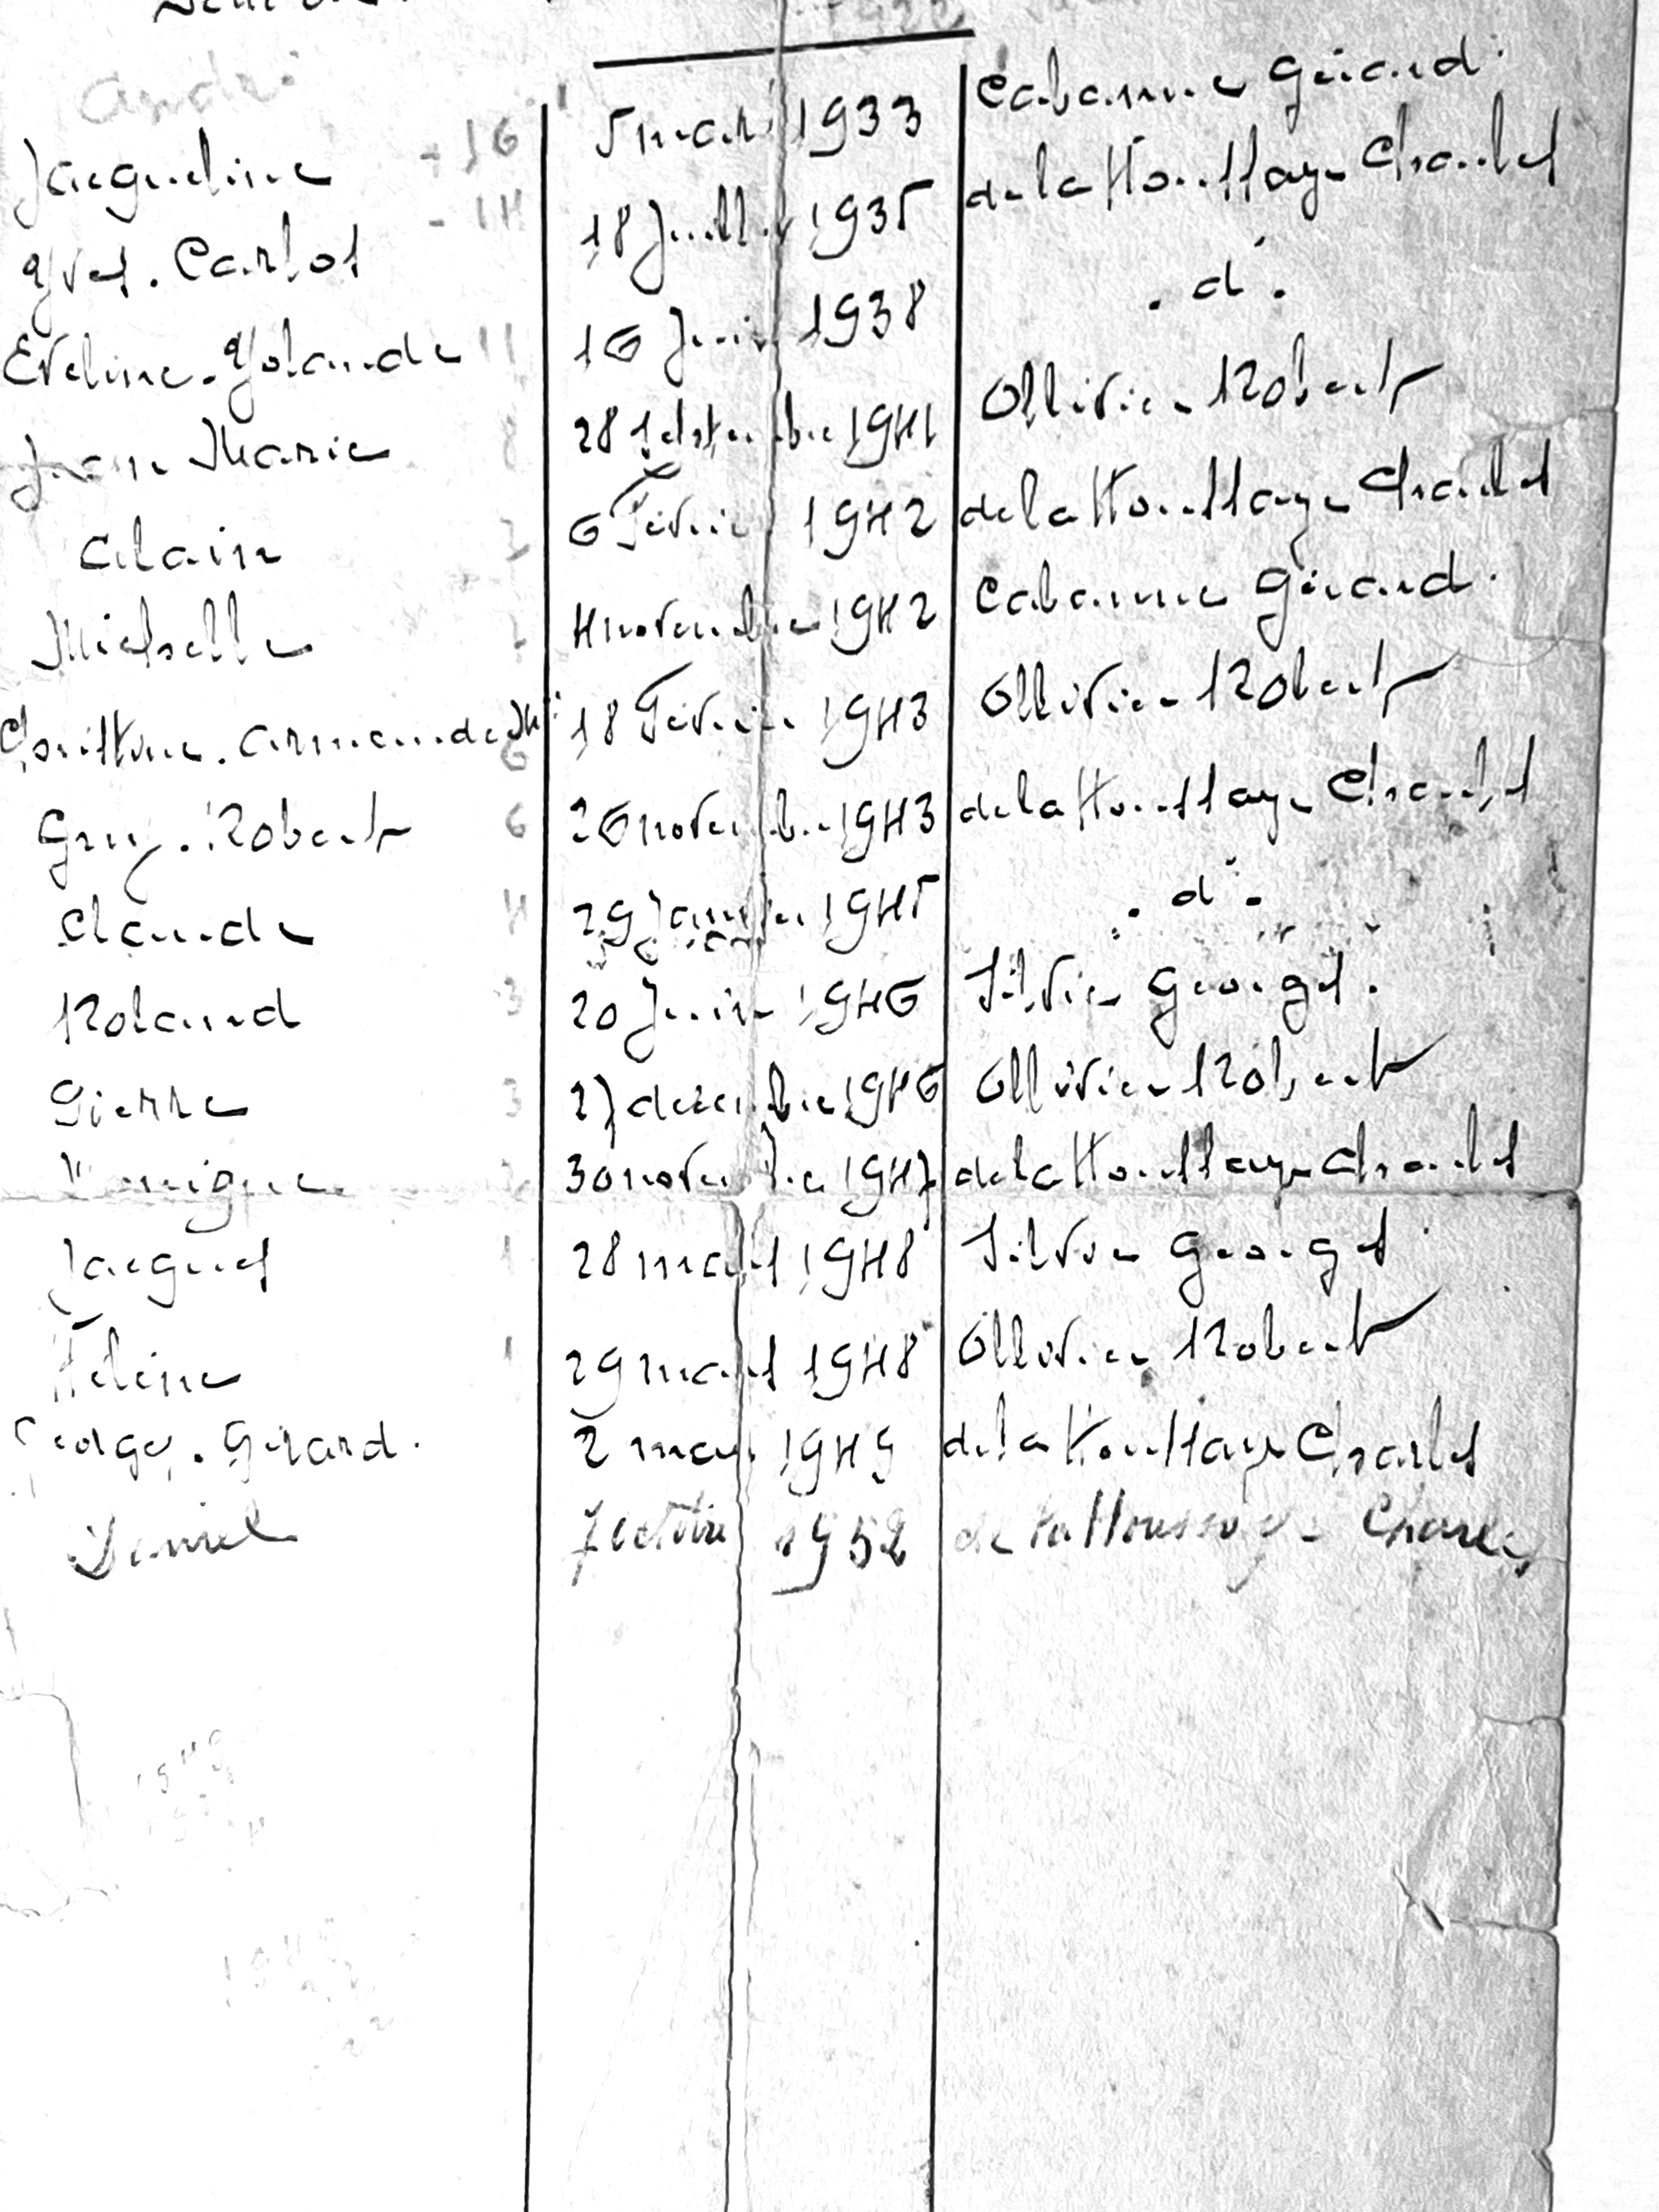 André
Jacqueline - 16 5 mars 1933 Cabanne Gérard.
Yves. Carlos - 14 18 Juillet 1935 de la Houssaye Charles
Eveline. Yolande 11 16 Juin 1938 . d° .
Jean Marie 8 28 septembre 1941 Ollivier Robert
Alain 6 Février 1942 de la Houssaye Charles
Michelle 4 novembre 1942 Cabanne Gérard.
Armande Mie 6 18 Février 1943 Ollivier Robert
Guy. Robert 6 26 novembre 1943 de la Houssaye Charles
Claude 4 29 Janvier 1945 . d° .
Roland 3 20 Juin 1946 Silvie Georges.
Pierre 3 27 decembre 1946 Ollivier Robert
30 novembre 1947 de la Houssaye Charles
Jacques 1 28 mars 1948 Silvie Georges
Helène 1 29 mars 1948 Ollivier Robert
Georges. Gérard. 2 mars 1949 de la Houssaye Charles
Daniel 7 octobre 1952 de la Houssaye Charles